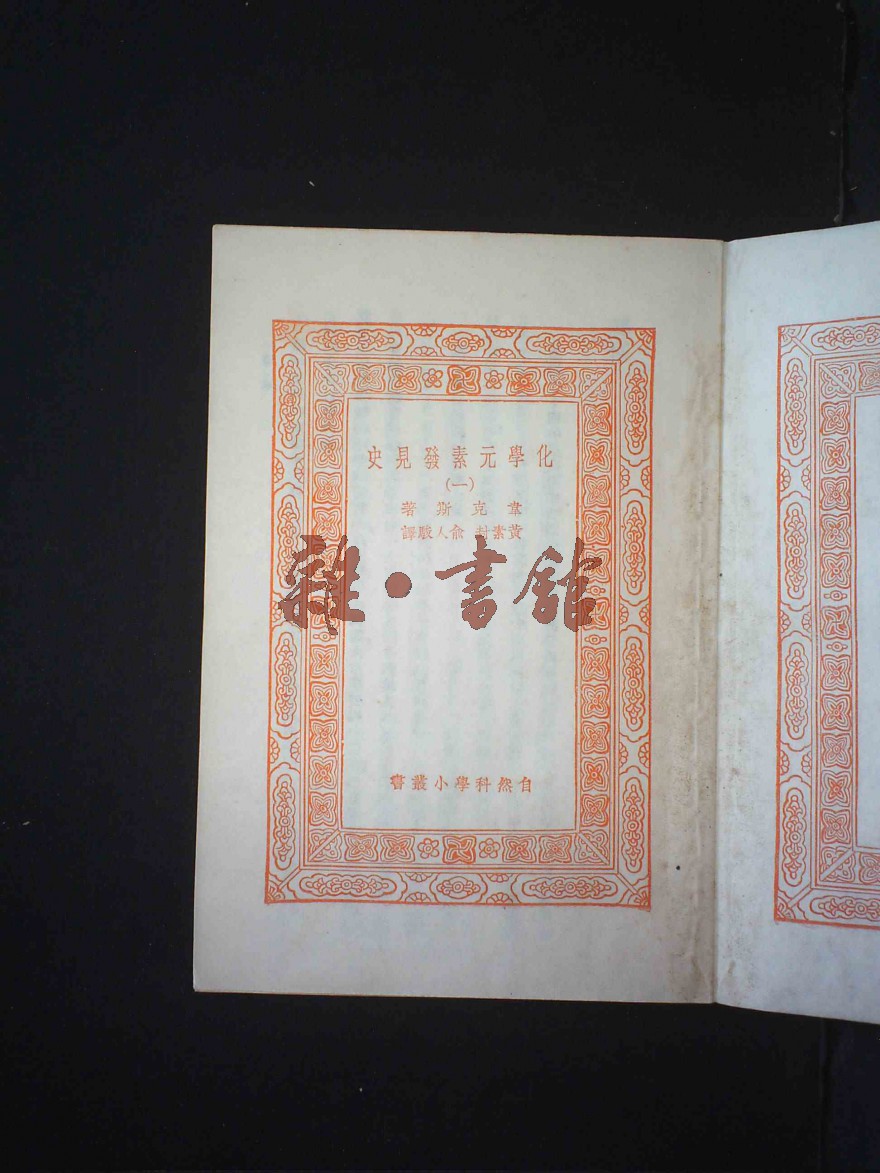 化學元素發見史
(一)
韋克斯著
黃素封 俞人駿譯
雜·書館
自然科學小叢書